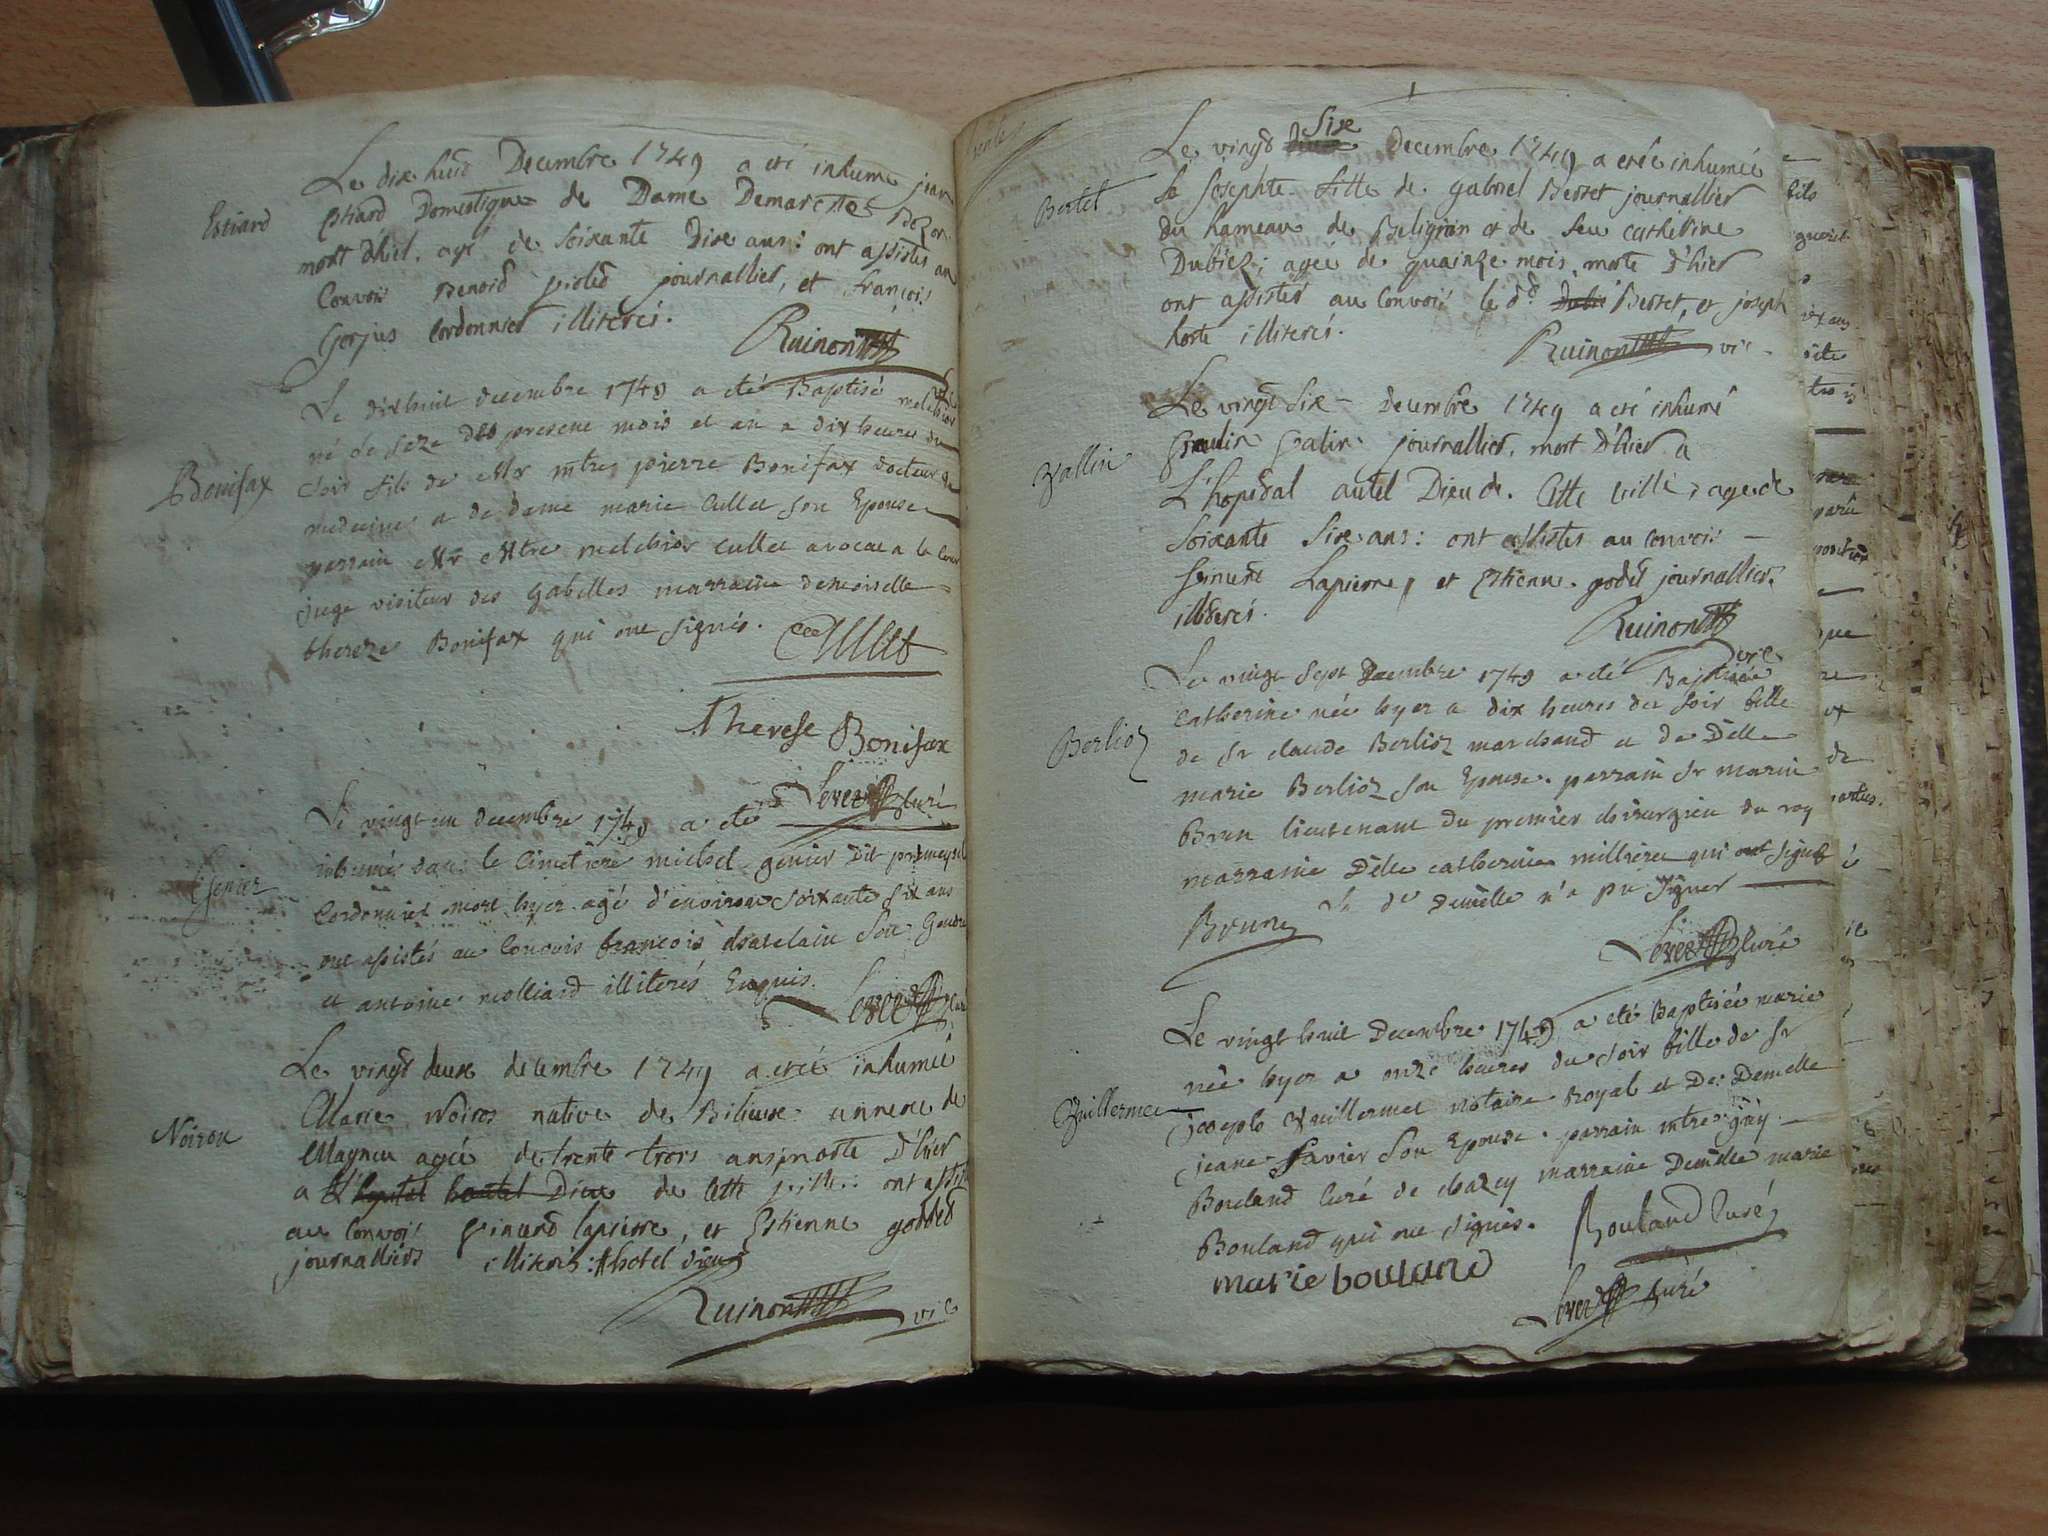 Le dix huid Decembre 1749 a eté inhume jean
Estiard
Estiard Domestique de Dame Demareste
mort d'hier, agé de soixante Dixe ans: ont assistes au
Convois Benoid violed journallier, et françois
Gorjus Cordonnier illiterés.
Ruinon
Le dixhuit decembre 1749 a eté Baptisé melchior
né le seze du present mois et an a dix heures du
Bonifax
soir fils de Mr mtre pierre Bonifax docteur en
medecine, et de dame marie Cullet son Epouse
parrain Mr Mtre melchior Cullet avocat a la Cour
juge visiteur des Gabelles marraine demoiselle
thereze Bonifax qui ont signés.
Cullet
Therese Bonifax
Curé
Le vingt un decembre 1749 a eté
inhumé dans le Cimetiere michel genier dit
Genier
Cordonnier mort hyer agé d'environ soixante six ans
ont assistés au Convois francois chatelain son Gendre
et antoine molliard illiterés Enquis.
Le vingt deux decembre 1749 a eté inhumée
Marie Noiron native de annexe de
Noiron
Magnieu agée de trente trois ans morte d'hier
a L'hopital hautel Dieu de Cette ville: ont assiste
au Convois lapierre, et Estienne godded
journalliers illiterés: hotel dieu
Ruinon vic
Le vingt Sixe Decembre 1749 a etée inhumée
Bertet
Josephte fille de gabriel Bertet journallier
du hameau de Belignin et de feu Catherine
Dubiez; agée de quainze mois, morte d'hier
ont assistes au Convois le dd Bertet, et joseph
horte illiterés.
Ruinon vic
Le vingt Sixe Decembre 1749 a eté inhumé
Vallin
valin journallier, mort d'hier a
L'hopidal autel Dieu de Cette ville, age de
Soixante Sixe ans: ont assistes au Convois
Lapierre, et Estienne goded journallier.
illiterés.
Ruinon
Le vingt Sept Decembre 1749 a eté Baptisée
Catherine née hyer a dix heures du soir fille
Berlioz
de Sr claude Berlioz marchand et de Delle
marie Berlioz son Epouse. parrain Sr marin
Brun lieutenant du premier chirurgien du roy
marraine Delle catherine millieret qui ont signés
la de demelle n'a pu signer
Brun
Curé
Le vingt huit Decembre 1749 a eté Baptisée marie
née hyer a onze heures du soir fille de Sr
Vuillermet
joseph Vuillermet notaire Royal et De Demelle
jeane Favier son Epouse. parrain mtre guy
Bouland Curé de chazey marraine Demelle marie
Bouland qui ont signés.
Bouland Curé
marie bouland
Curé